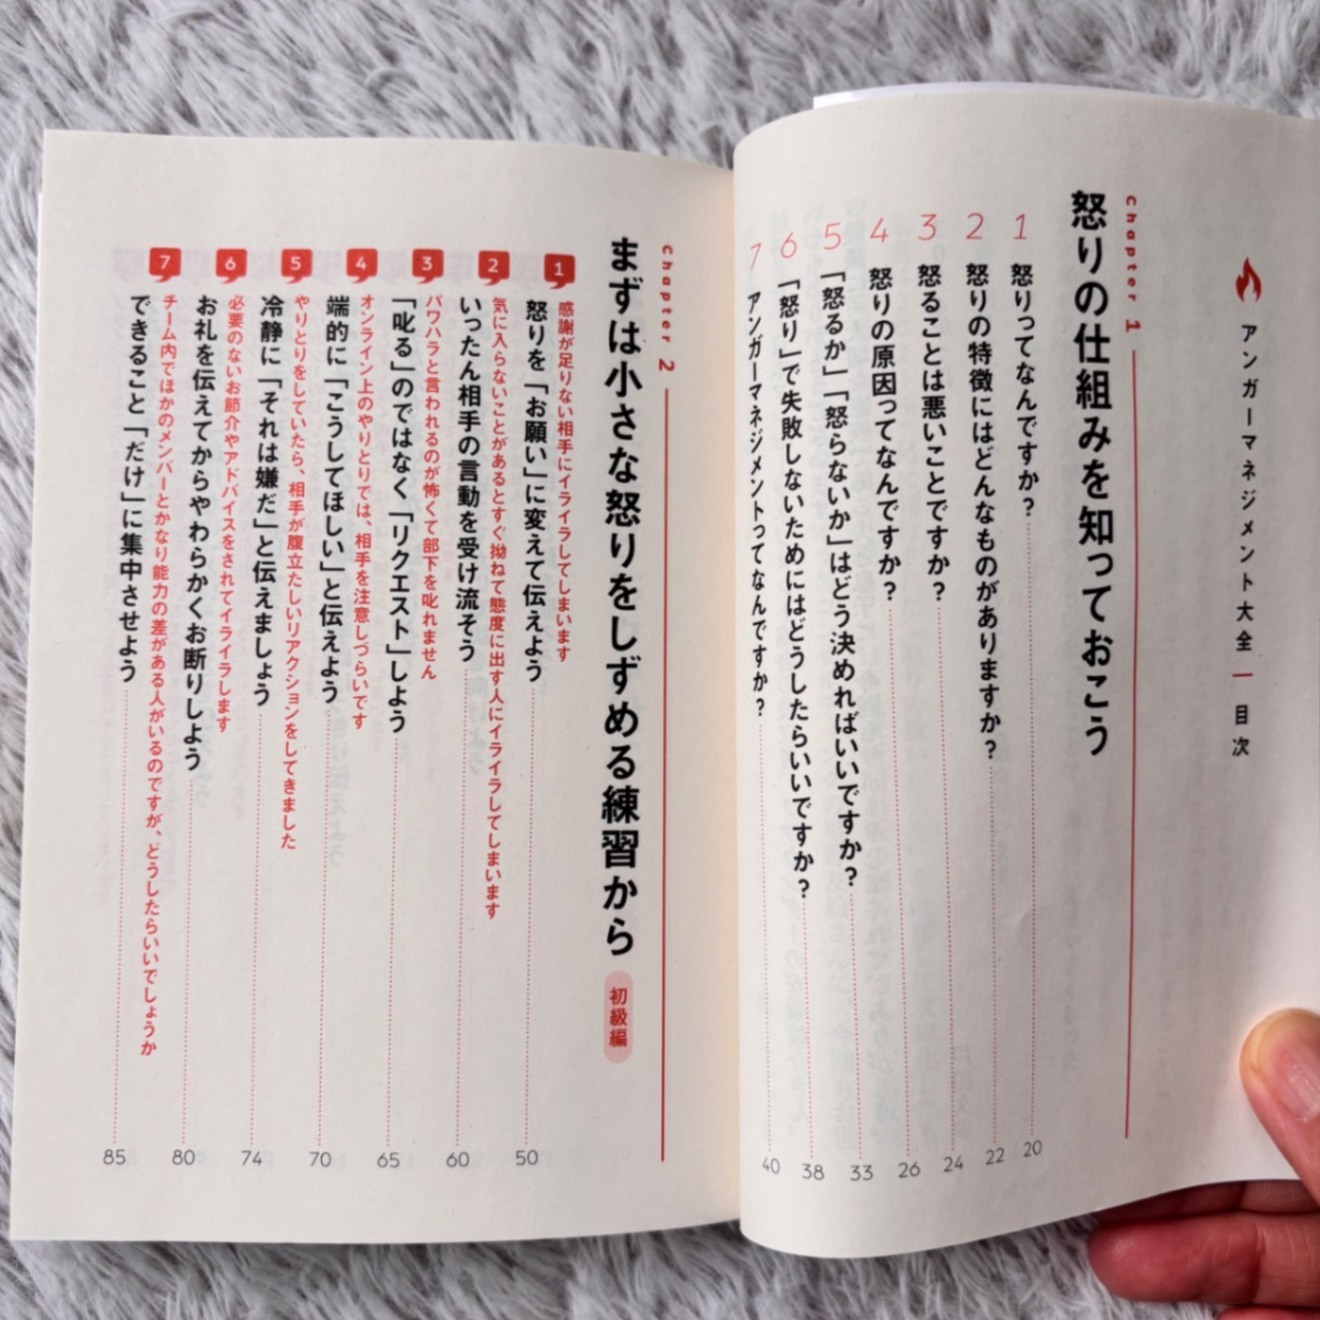 アンガーマネジメント大全 | 目次
Chapter 1
怒りの仕組みを知っておこう
1 怒りってなんですか? 20
2 怒りの特徴にはどんなものがありますか? 22
3 怒ることは悪いことですか? 24
4 怒りの原因ってなんですか? 26
5 「怒るか」「怒らないか」はどう決めればいいですか? 33
6 「怒り」で失敗しないためにはどうしたらいいですか? 38
7 アンガーマネジメントってなんですか? 40
Chapter 2
まずは小さな怒りをしずめる練習から 初級編
1 感謝が足りない相手にイライラしてしまいます
怒りを「お願い」に変えて伝えよう 50
2 気に入らないことがあるとすぐ拗ねて態度に出す人にイライラしてしまいます
いったん相手の言動を受け流そう 60
3 パワハラと言われるのが怖くて部下を叱れません
「叱る」のではなく「リクエスト」しよう 65
4 オンライン上のやりとりでは、相手を注意しづらいです
端的に「こうしてほしい」と伝えよう 70
5 やりとりをしていたら、相手が腹立たしいリアクションをしてきました
冷静に「それは嫌だ」と伝えましょう 74
6 必要のないお節介やアドバイスをされてイライラします
お礼を伝えてからやわらかくお断りしよう 80
7 チーム内でほかのメンバーとかなり能力の差がある人がいるのですが、どうしたらいいでしょうか
できること「だけ」に集中させよう 85